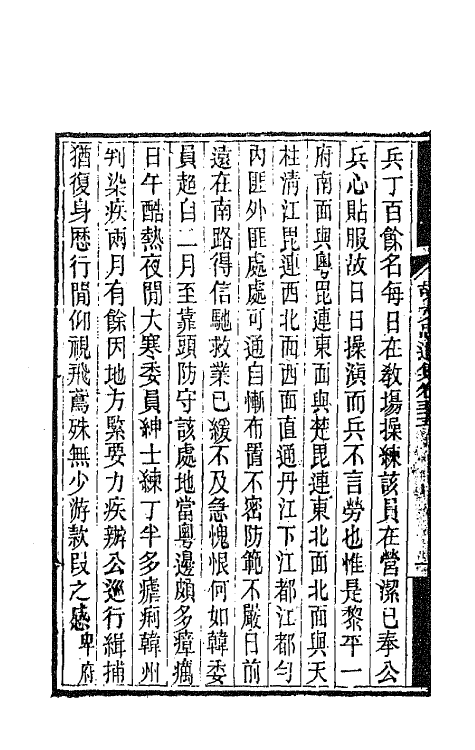 兵丁百餘名每日在教場操練該員在營潔已奉公
兵心貼服故日日操演而兵不言勞也惟是黎平一
府南面與粵毘連東面與楚毘連東北面北面與天
柱清江毘連西北面西面直通丹江下江都江都勻
內匪外匪處處可通自慚布置不密防範不嚴日前
遠在南路得信馳救業已緩不及急愧恨何如韓委
員超自二月至靠頭防守該處地當粵邊頗多瘴癘
日午酷熱夜閒大寒委員紳士練丁半多瘧痢韓州
判染疾兩月有餘因地方緊要力疾辦公廵行緝捕
猶復身歴行閒仰視飛鳶殊無少游款段之感卑府